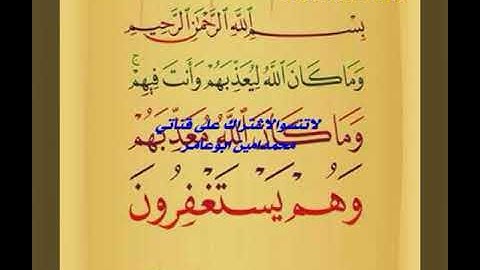 بِسْمِ اللَّهِ الرَّحْمَٰنِ الرَّحِيمِ
وَمَا كَانَ اللَّهُ لِيُعَذِّبَهُمْ وَأَنتَ فِيهِمْ ۚ
وَمَا كَانَ اللَّهُ مُعَذِّبَهُمْ
لاتنسوالاشتراك على قناتي
محمدامين ابوعامر
وَهُمْ يَسْتَغْفِرُونَ